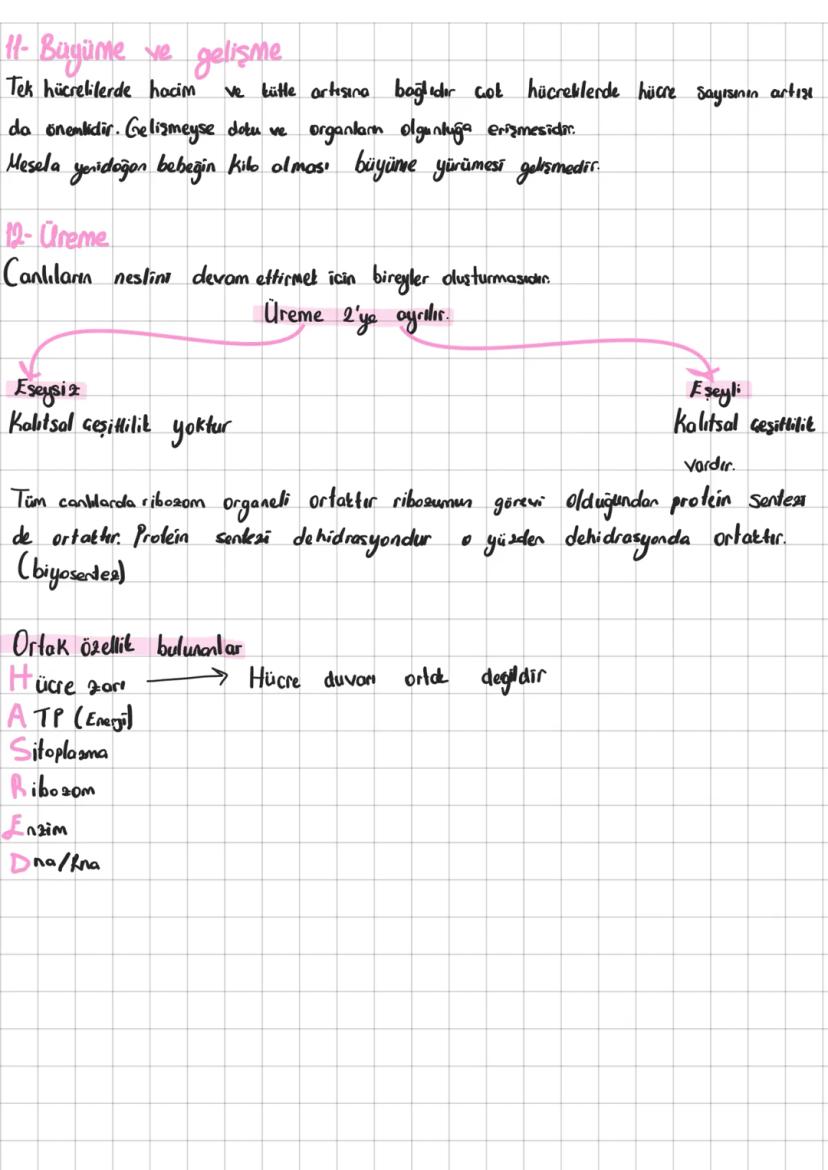 11- Büyüme ve gelişme
Tek hücrelilerde hacim ve kütle artışına bağlıdır çok hücrelilerde hücre sayısının artışı
da önemlidir. Gelişmeyse doku ve organların olgunluğa erişmesidir.
Mesela yenidoğan bebeğin kilo alması büyüme yürümesi gelişmedir.
12- Üreme
Canlıların neslini devam ettirmek için bireyler oluşturmasıdır.
Üreme 2'ye ayrılır.
Eşeysiz Eşeyli
Kalıtsal çeşitlilik yoktur Kalıtsal çeşitlilik
vardır.
Tüm canlılarda ribozom organeli ortaktır ribozomun görevi olduğundan protein sentezi
de ortaktır. Protein sentezi dehidrasyondur o yüzden dehidrasyonda ortaktır.
(biyosentez)
Ortak özellik bulunanlar
Hücre zarı → Hücre duvarı ortak değildir
ATP (Enerji)
Sitoplazma
Ribozom
Enzim
Dna/Rna